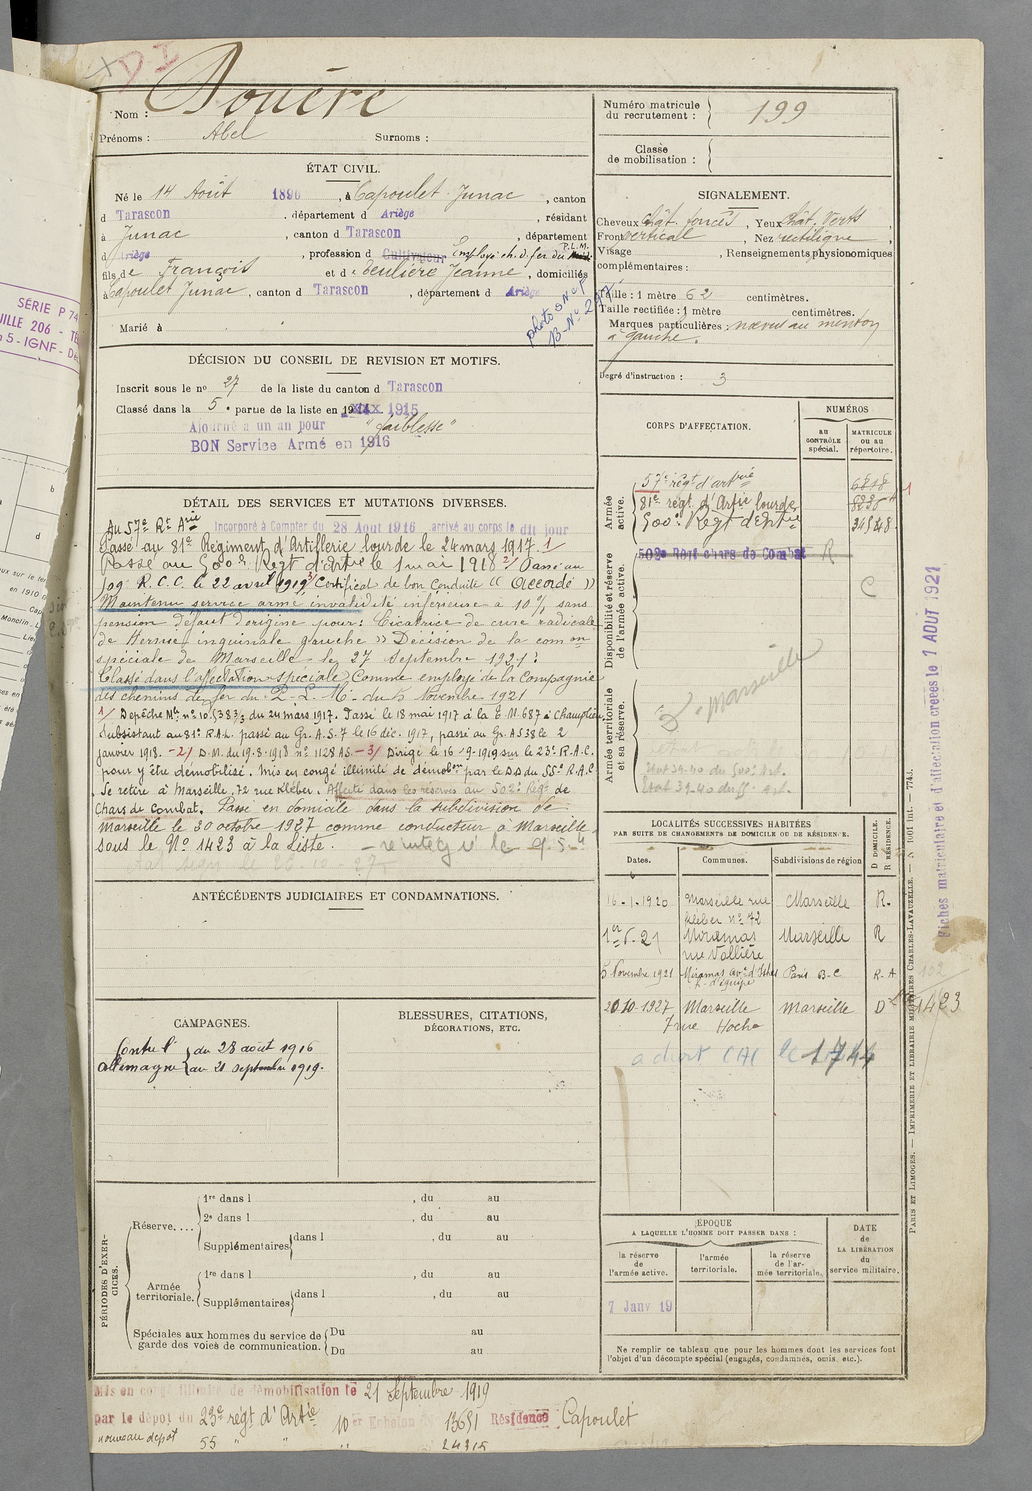 DI
Nom : Douère
Prénoms : Abel Surnoms :
ÉTAT CIVIL.
Né le 14 Août 1896, à Capoulet-Junac, canton
d Tarascon, département d Ariège, résidant
à Junac, canton d Tarascon, département
d Ariège, profession d Cultivateur Employé ch. d. fer du P.L.M.
fils de François et de Teulière Jeanne, domiciliés
à Capoulet Junac, canton d Tarascon, département d Ariège
photo SNCF
B-N° 297
Marié à
DÉCISION DU CONSEIL DE REVISION ET MOTIFS.
Inscrit sous le n° 27 de la liste du canton d Tarascon
Classé dans la 5e partie de la liste en 1915
Ajourné a un an pour "faiblesse"
BON Service Armé en 1916
DÉTAIL DES SERVICES ET MUTATIONS DIVERSES.
Au 57e Rt Arie Incorporé à Compter du 28 Aout 1916 arrivé au corps le dit jour
Passé au 81e Régiment d'Artillerie lourde le 24 mars 1917. 1/
Passé au 500e Régt d'Artie le 1 mai 1918 2/ Passé au
509 R.C.C. le 22 avril 1919 3/ Certificat de bon Conduite « Accordé »
Maintenu service armé invalidité inférieure à 10 % sans
pension défaut d'origine pour : Cicatrice de cure radicale
de Hernie inguinale gauche » Décision de la comon
spéciale de Marseille le 27 Septembre 1921 :
Classé dans l'affectation spéciale Comme employé de la Compagnie
des chemins de fer du P-L-M. du 5 Novembre 1921
1/ Depêche Mlle n° 10.538 3/3 du 24 mars 1917. Passé le 18 mai 1917 à la E.M. 687 à Champlieu
Subsistant au 81e R.A.L. passé au Gr. A.S.7 le 16 déc. 1917, passé au Gr. AS38 le 2
janvier 1918. - 2/ D.M. du 19-8-1918 n° 1128 AS. - 3/ Dirigé le 16-9-1919 sur le 23e R.A.C.
pour y être démobilisé. Mis en congé illimité de démobon par le DD du 55e R.A.C
Se retire à Marseille, 72 rue Kléber. Affecté dans les réserves au 502e Régt de
chars de combat. Passé en domicile dans la subdivision de
Marseille le 30 octobre 1927 comme conducteur à Marseille
sous le N° 1423 à la liste.
ANTÉCÉDENTS JUDICIAIRES ET CONDAMNATIONS.
CAMPAGNES.
Contre l'Allemagne du 28 août 1916
au 21 septembre 1919.
BLESSURES, CITATIONS,
DÉCORATIONS, ETC.
PÉRIODES D'EXERCICES.
Réserve....
1re dans l , du au
2e dans l , du au
Supplémentaires dans l , du au
Armée territoriale.
1re dans l , du au
Supplémentaires dans l , du au
Spéciales aux hommes du service de
garde des voies de communication.
Du au
Du au
Mis en congé illimité de démobilisation le 21 Septembre 1919
par le dépôt du 23e régt d'Artie 10er Echelon 13651 Résidence Capoulet
nouveau depot 55 " " " 24315
Numéro matricule
du recrutement : 199
Classe
de mobilisation :
SIGNALEMENT.
Cheveux chât. foncés, Yeux chât. verts
Front vertical, Nez rectiligne,
Visage , Renseignements physionomiques
complémentaires :
Taille : 1 mètre 62 centimètres.
Taille rectifiée : 1 mètre centimètres.
Marques particulières : nœvus au menton
à gauche.
Degré d'instruction : 3
CORPS D'AFFECTATION.
NUMÉROS
au
CONTRÔLE
spécial.
MATRICULE
ou au
répertoire.
Armée
active.
57e régt d'artrie
81e régt d'Artie lourde 8236
500e Régt d'Artie
Disponibilité et réserve
de l'armée active.
502e Régt chars de Combat R
C
Armée territoriale
et sa réserve.
D - Marseille
LOCALITÉS SUCCESSIVES HABITÉES
PAR SUITE DE CHANGEMENTS DE DOMICILE OU DE RÉSIDENCE.
D DOMICILE.
R RÉSIDENCE.
Dates. Communes. Subdivisions de région
16-1-1920 Marseille rue Kléber n° 72 Marseille R.
1er 5-21 Miramas rue Vallière Marseille R
5 Novembre 1921 Miramas Paris B-C R.A
20.10.1927 Marseille 7 rue Hoche Marseille D 1423
a droit CAC le 1744
ÉPOQUE
A LAQUELLE L'HOMME DOIT PASSER DANS :
la réserve
de
l'armée active.
l'armée
territoriale.
la réserve
de l'armée territoriale.
DATE
de
LA LIBÉRATION
du
service militaire.
7 Janv 19
Ne remplir ce tableau que pour les hommes dont les services font
l'objet d'un décompte spécial (engagés, condamnés, omis, etc.).
Fiches matriculaire et d'affectation créées le 1 AOUT 1921
PARIS ET LIMOGES. — IMPRIMERIE ET LIBRAIRIE MILITAIRES CHARLES-LAVAUZELLE.
SÉRIE P